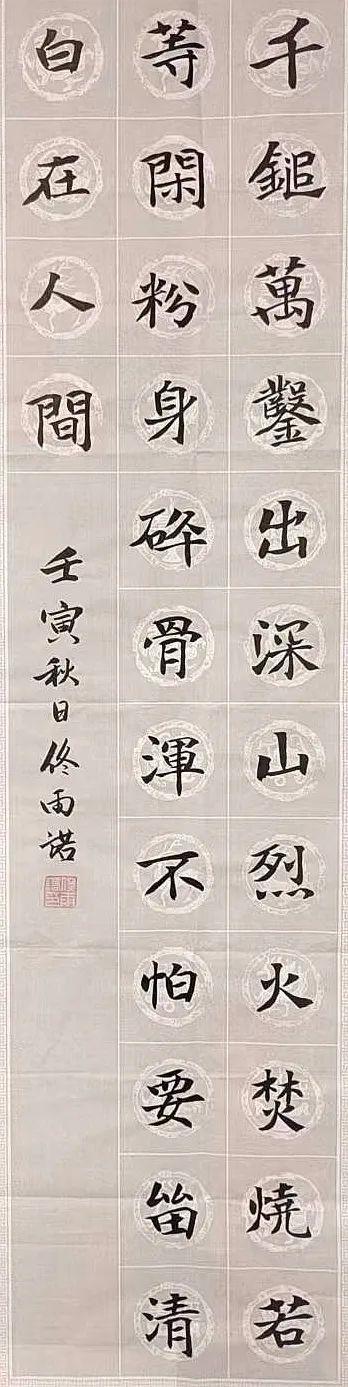 千鎚萬鑿出深山烈火焚燒若
等閑粉身碎骨渾不怕要留清
白在人間
壬寅秋日佟雨諾